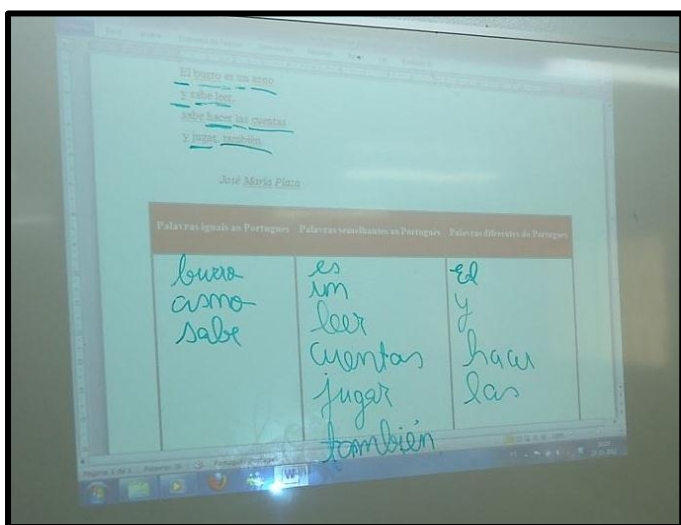 El burro es un asno
y sabe leer,
sabe hacer las cuentas
y jugar, también.
José María Plaza
Palavras iguais ao Português Palavras semelhantes ao Português Palavras diferentes do Português
burro es El
asno um y
sabe leer hacer
cuentas las
jugar
también
Página 1 de 1 Palavras: 38 Português (Portugal)